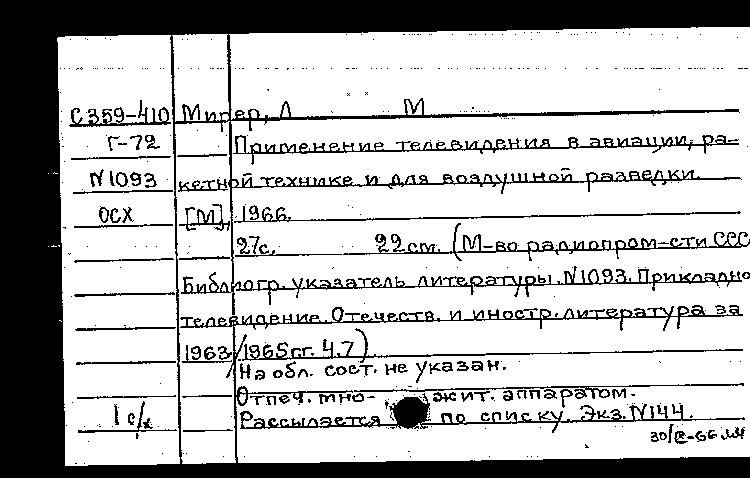 С359-410 Мирер, Л М
Г-72 Применение телевидения в авиации, ра-
N1093 кетной технике и для воздушной разведки.
ОСХ [М], 1966.
27с. 22см. (М-во радиопром-сти ССС
Библиогр. указатель литературы. N1093. Прикладно
телевидение. Отечеств. и иностр. литература за
1963/1965гг. Ч.7)
На обл. сост. не указан.
Отпеч. мно- жит. аппаратом.
1 с/х Рассылается по списку. Экз. N144.